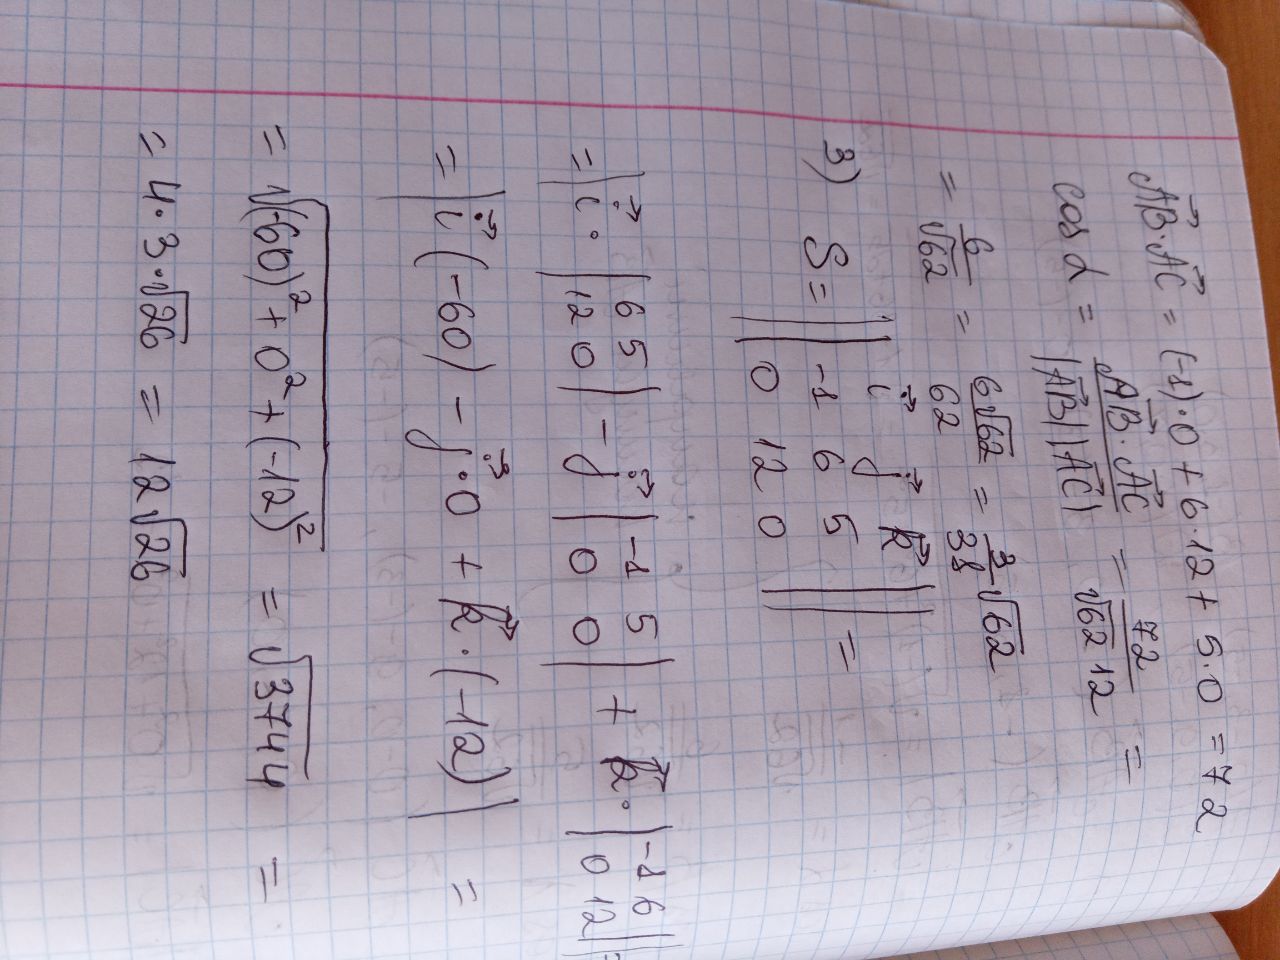 AB⃗·AC⃗ = (-1)·0 + 6·12 + 5·0 = 72
cos α = (AB⃗·AC⃗)/(|AB⃗||AC⃗|) = 72/(√62 12) =
= 6/√62 = 6√62/62 = 3/31 √62
3) S = || i⃗ j⃗ k⃗ || =
-1 6 5
0 12 0
= | i⃗ · |6 5; 12 0| - j⃗ |-1 5; 0 0| + k⃗ · |-1 6; 0 12| | =
= | i⃗ (-60) - j⃗·0 + k⃗·(-12) | =
= √((-60)² + 0² + (-12)²) = √3744 =
= 4·3·√26 = 12√26